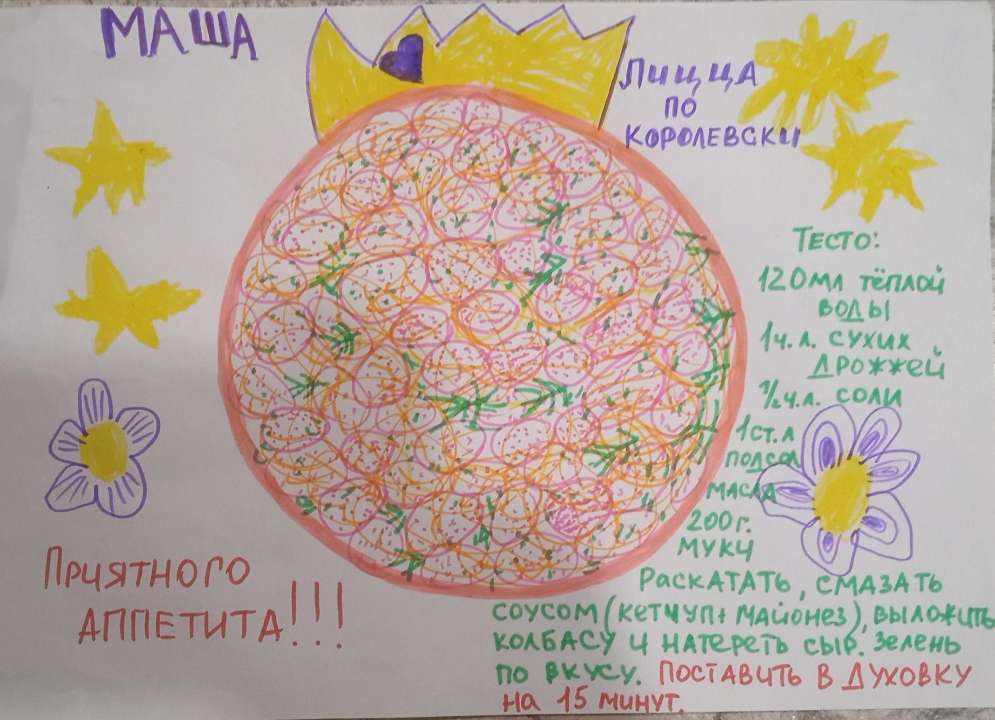 МАША
ПИЦЦА
ПО
КОРОЛЕВСКИ
ТЕСТО:
120мл тёплой
воды
1ч.л. сухих
дрожжей
1/2ч.л. соли
1ст.л
подсол
масла
200г.
муки
Раскатать, смазать
соусом (кетчуп+майонез), выложить
колбасу и натереть сыр. Зелень
по вкусу. Поставить в духовку
на 15 минут.
Приятного
аппетита!!!